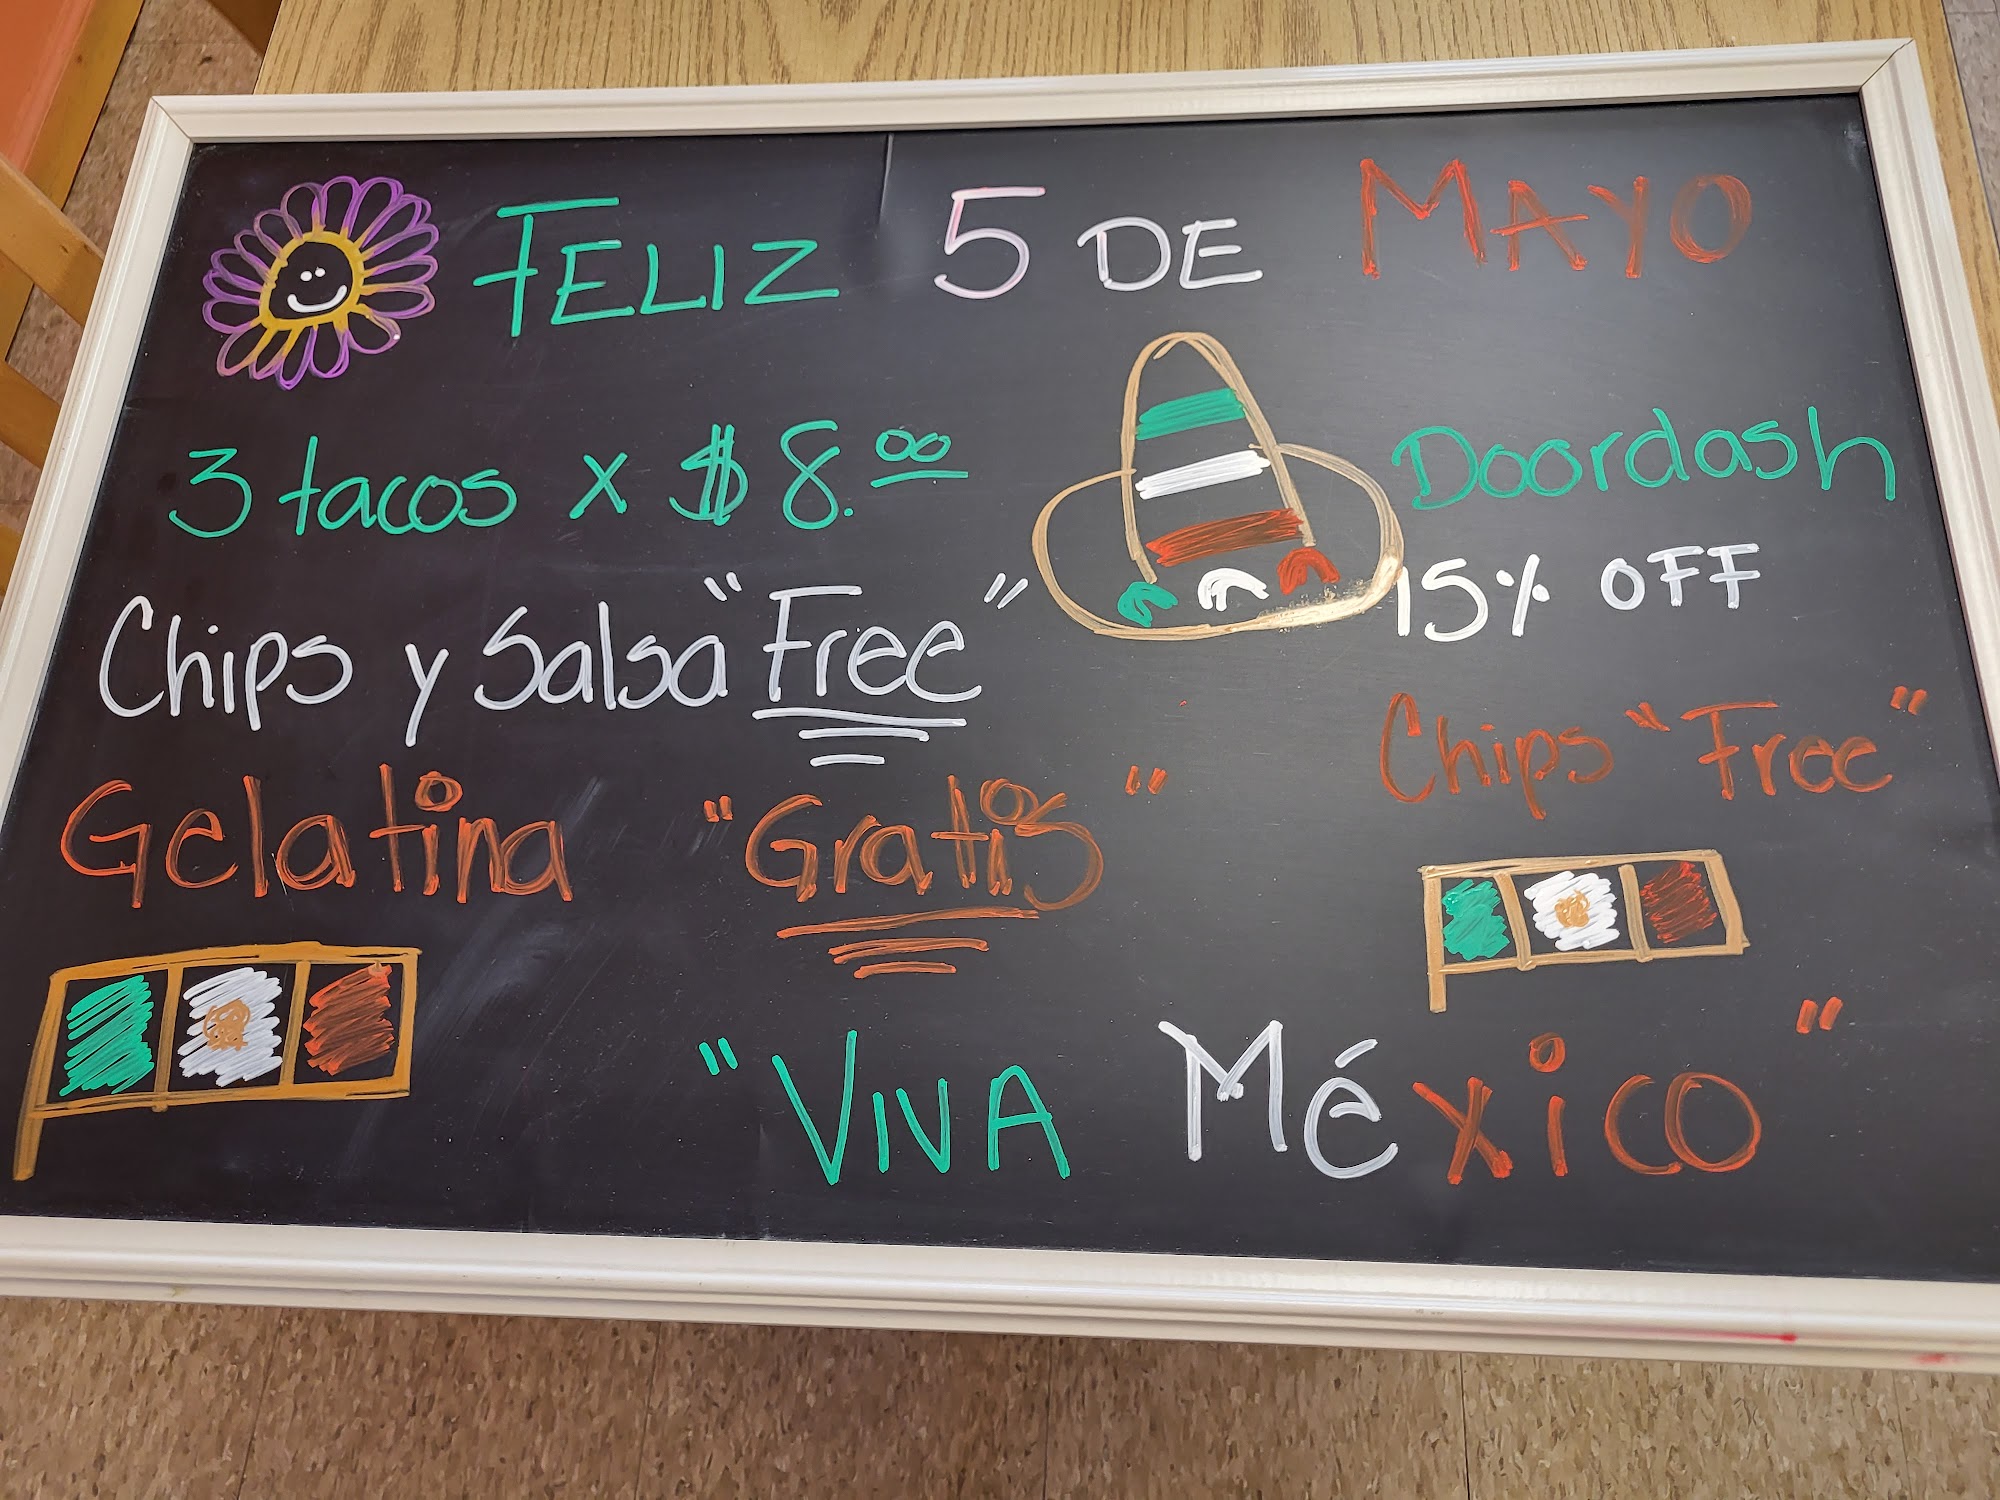 FELIZ 5 DE MAYO
3 tacos x $8.00
Chips y Salsa "Free"
Gelatina "Gratis"
Doordash
15% OFF
Chips "Free"
"VIVA México"